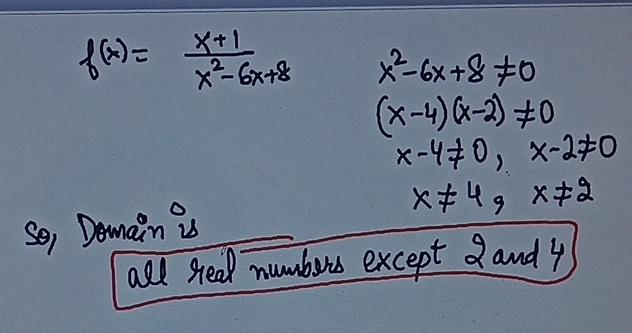 f(x) = x+1 / x²-6x+8
x²-6x+8 ≠ 0
(x-4)(x-2) ≠ 0
x-4 ≠ 0, x-2 ≠ 0
x ≠ 4, x ≠ 2
So, Domain is
all real numbers except 2 and 4